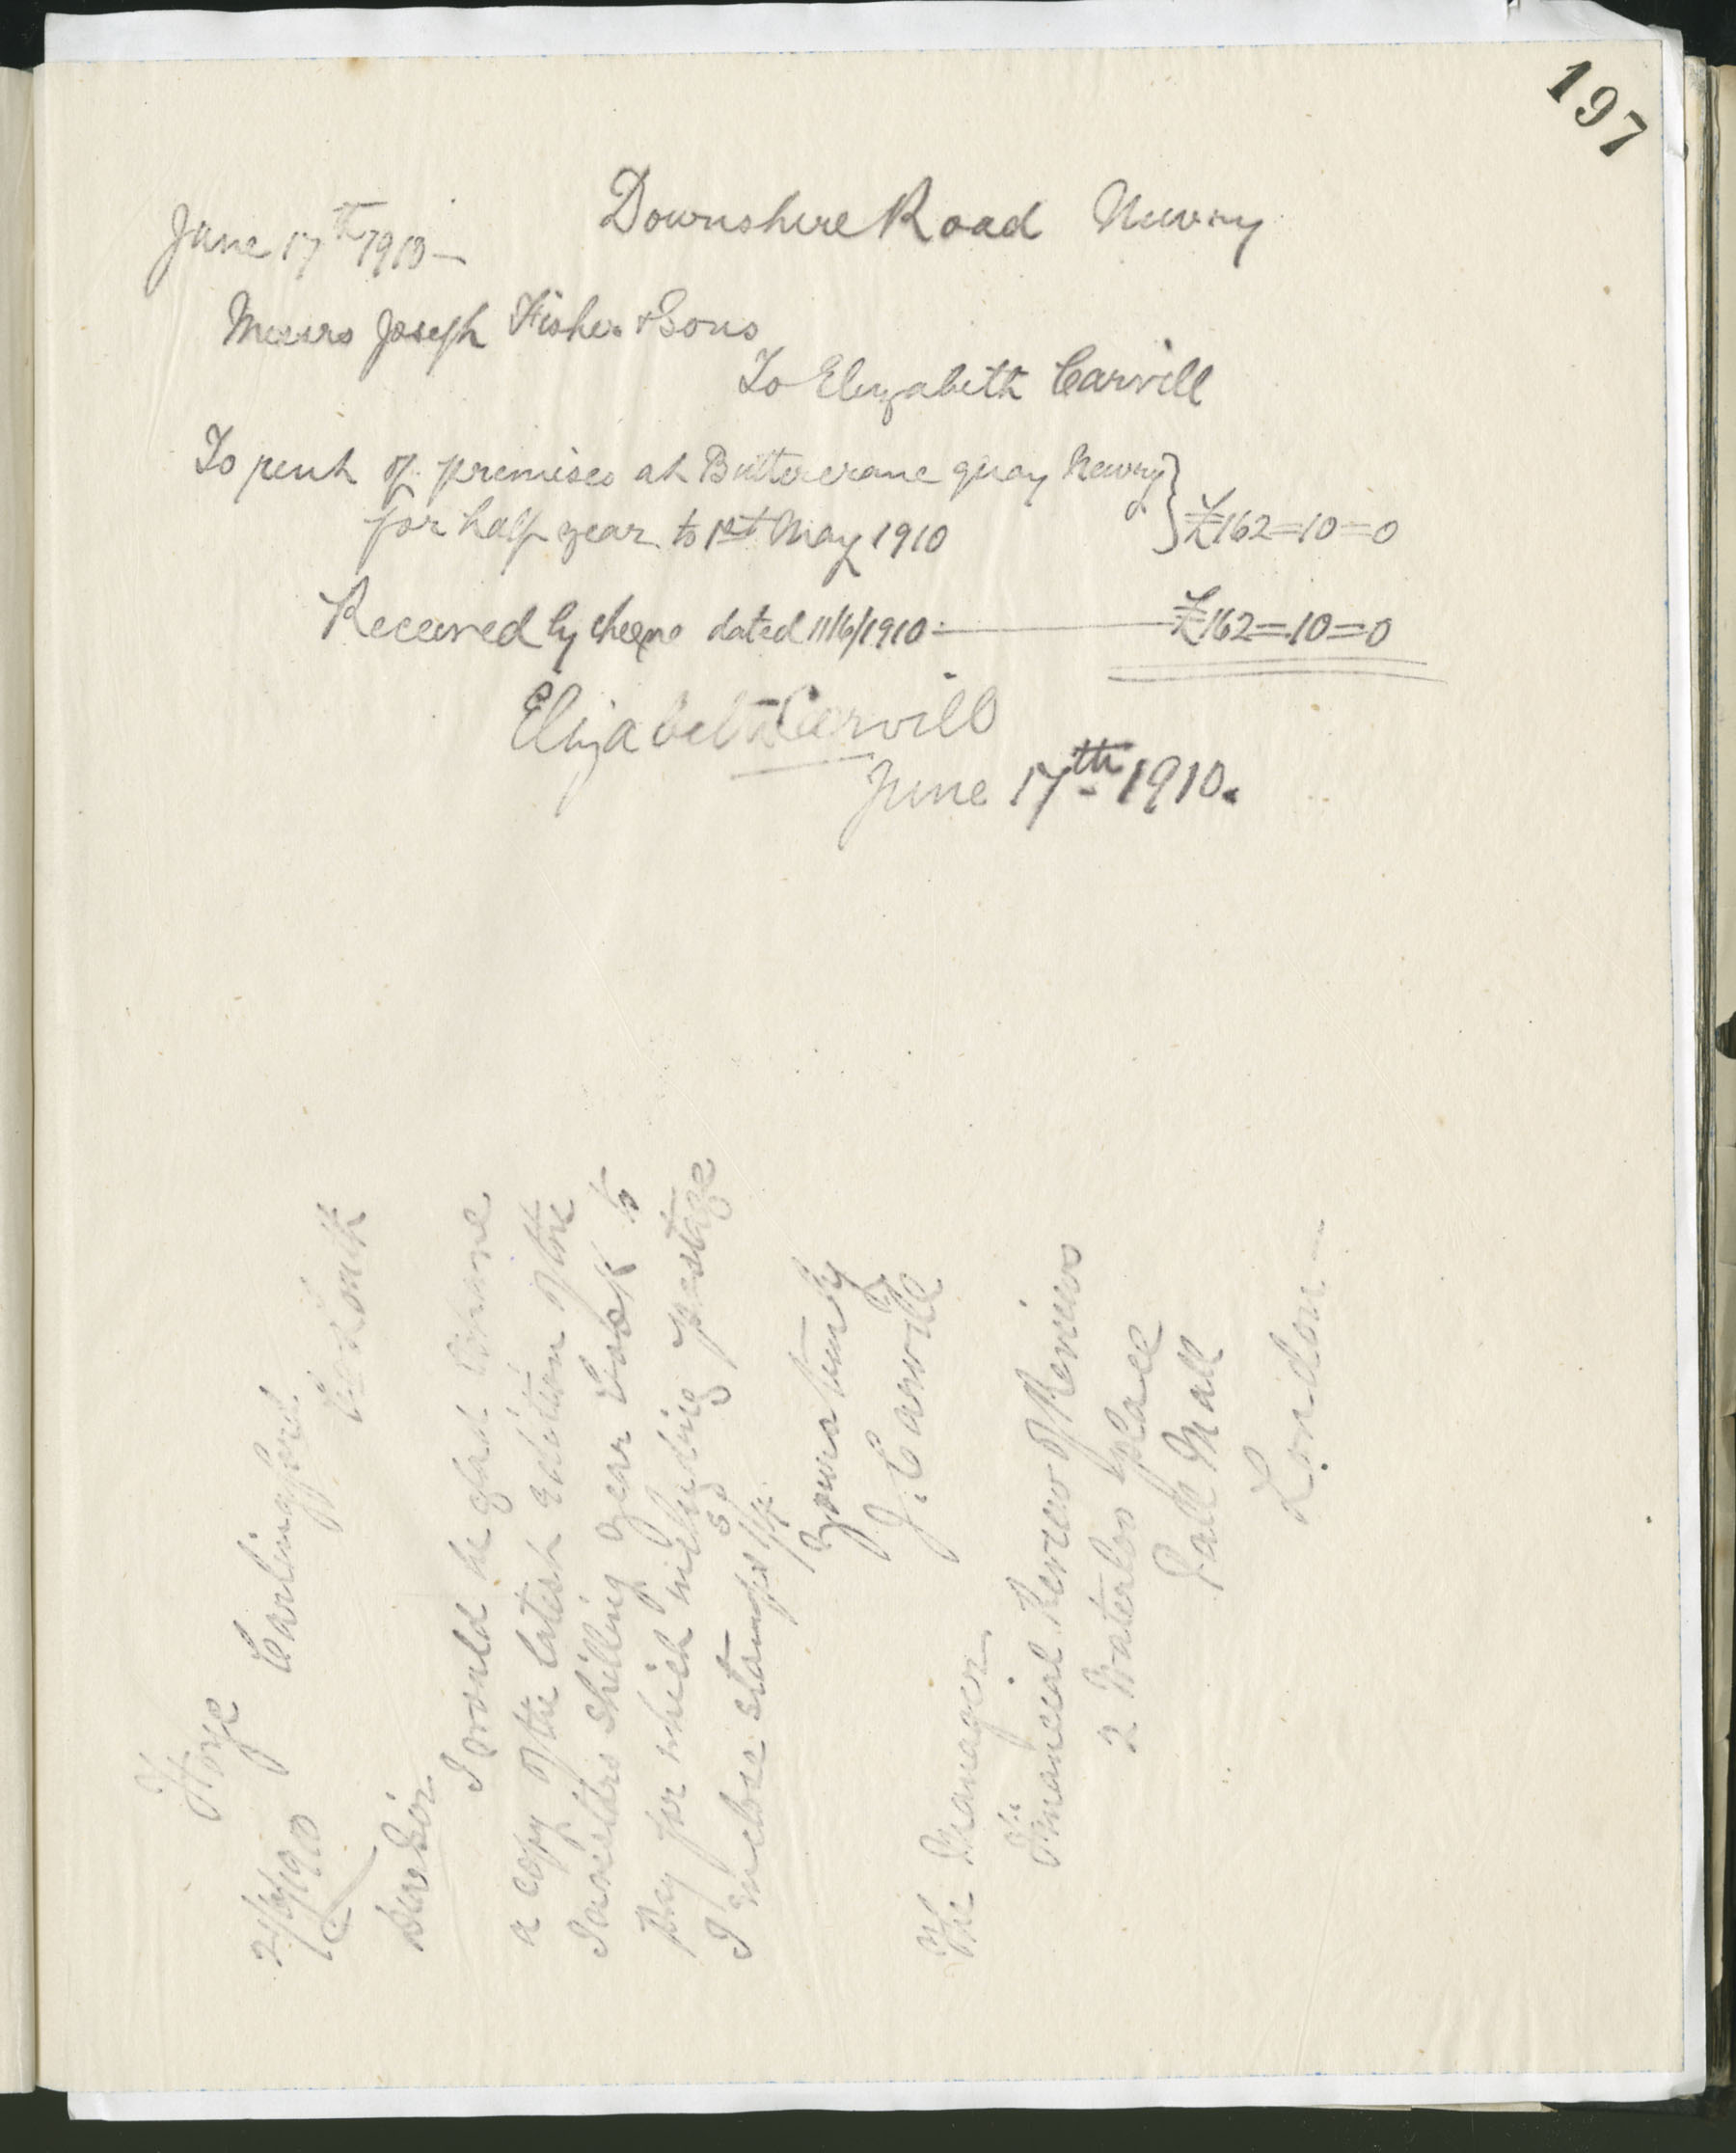 197
Downshire Road Newry
June 17th 1910 —
Messrs Joseph Fisher & Sons
To Elizabeth Carvill
To rent of premises at Buttercrane quay Newry
for half year to 1st May 1910 £162=10=0
Received by cheque dated 11/6/1910 — £162=10=0
Elizabeth Carvill
June 17th 1910.
Carlingford
Co Louth
21/6/1910
Dear Sir
I would be glad to have
a copy of the latest edition of the
Investors shilling year Book to
Pay for which including postage
I enclose stamps
yours truly
J. Carvill
The Manager
Financial Review of Reviews
2 Waterloo place
Pall Mall
London —